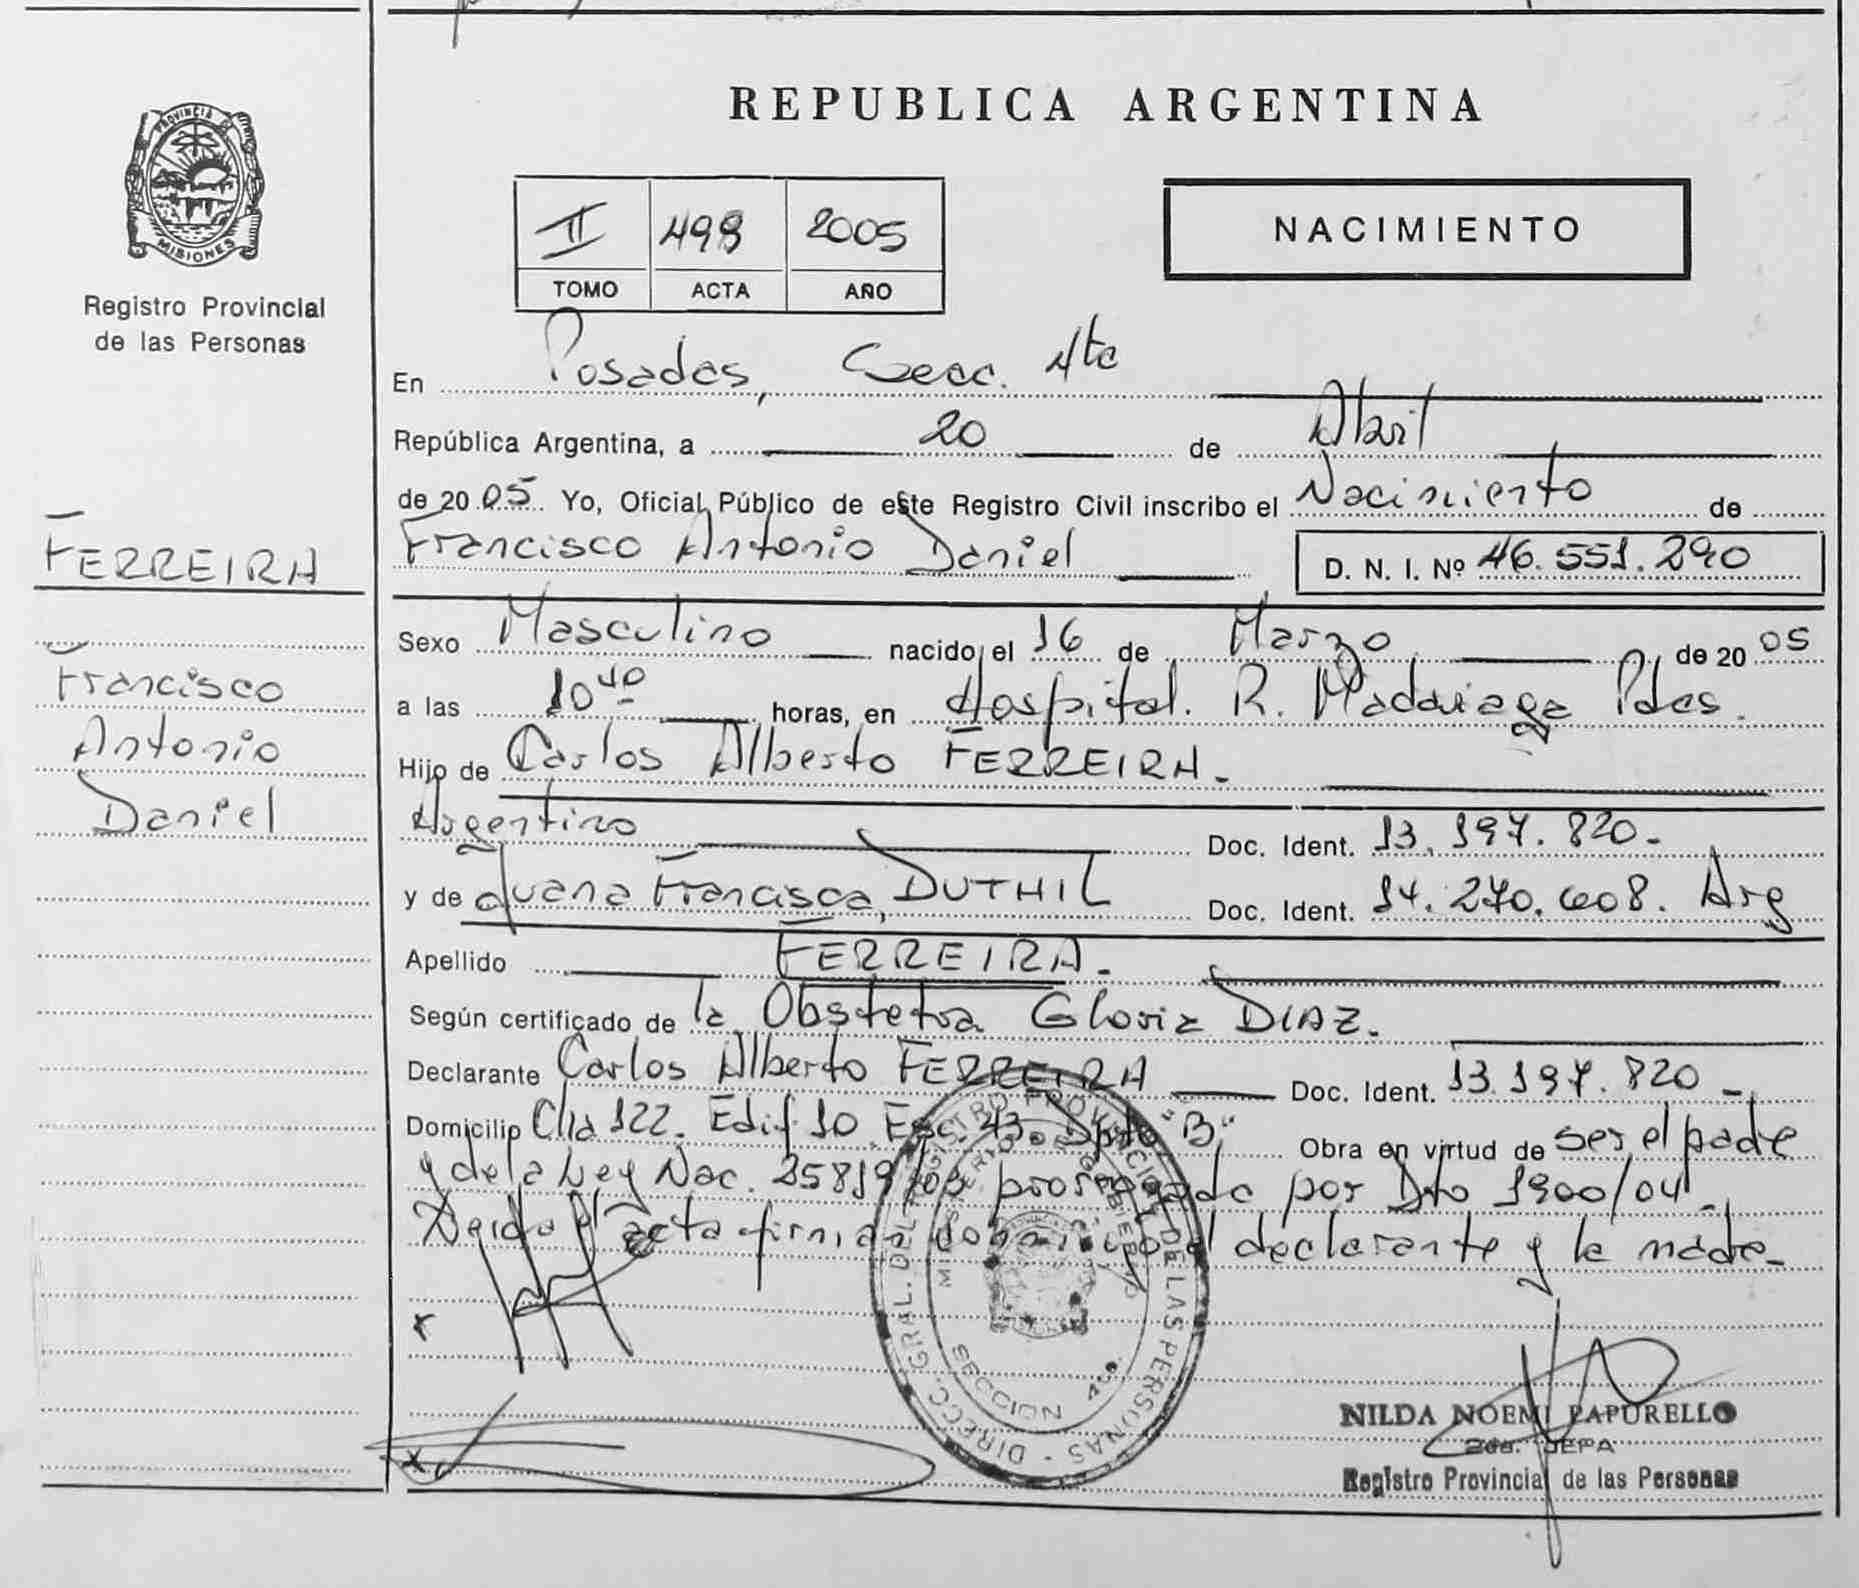 PROVINCIA DE
MISIONES
Registro Provincial
de las Personas
FERREIRA
Francisco
Antonio
Daniel
REPUBLICA ARGENTINA
II 498 2005
TOMO ACTA AÑO
NACIMIENTO
En Posadas, Secc. 4ta
República Argentina, a 20 de Abril
de 2005 Yo, Oficial Público de este Registro Civil inscribo el Nacimiento de
Francisco Antonio Daniel D. N. I. Nº 46.551.290
Sexo Masculino nacido el 16 de Marzo de 2005
a las 10 40 horas, en Hospital. R. Madariaga Pdas.
Hijo de Carlos Alberto FERREIRA.
Argentino Doc. Ident. 13.197.820-
y de Juana Francisca, DUTHIL Doc. Ident. 14.270.608. Arg
Apellido FERREIRA.
Según certificado de la Obstetra Gloria DIAZ.
Declarante Carlos Alberto FERREIRA Doc. Ident. 13.197.820-
Domicilio Cha 122. Edif 10 Esc. 43 Dpto "B" Obra en virtud de ser el padre
y de la Ley Nac. 25819/03 prorrogada por Dto 1900/04.
Leida el acta firman conmigo el declarante y la madre-
x
x
DIRECC. GRAL. DEL REGISTRO PROVINCIAL DE LAS PERSONAS
MINISTERIO DE GOBIERNO
SECCION 4ta.
NILDA NOEMI PAPURELLO
2da. JEFA
Registro Provincial de las Personas